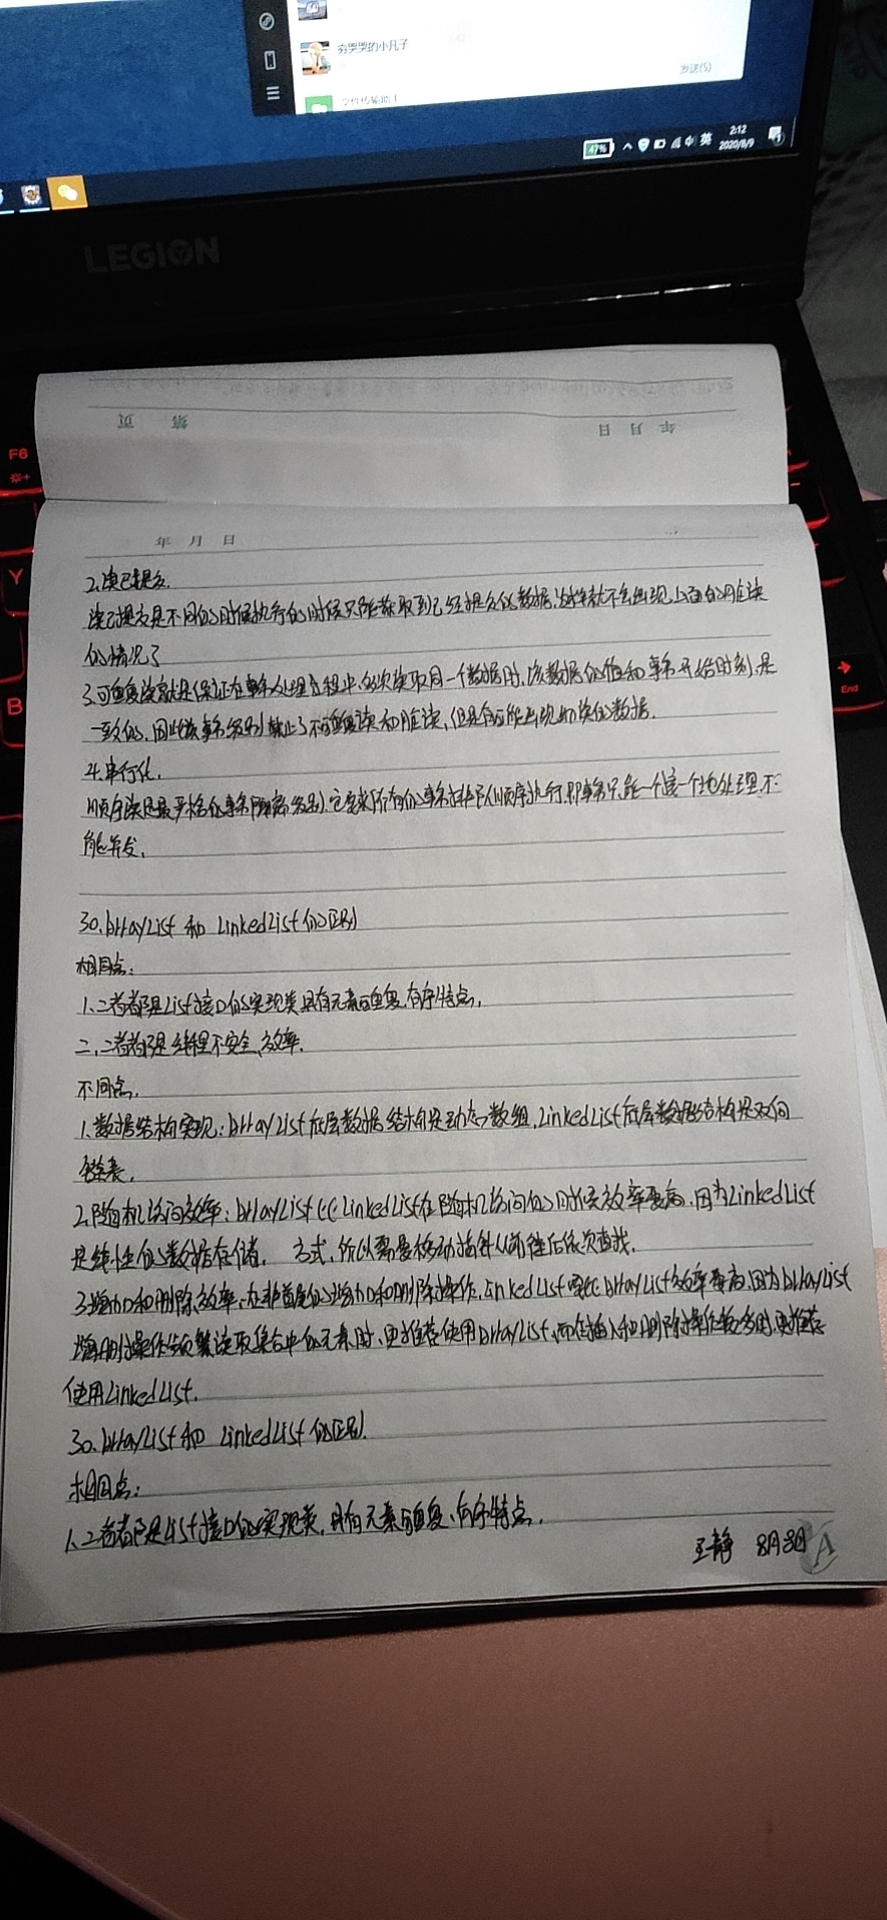 穷哭哭的小凡子
发送(S)
文件传输助手
47%
英
2:12
2020/8/9
LEGION
第 页
年 月 日
F6
Y
B
End
年 月 日
2.读已提交.
读已提交是不同的时候执行的时候只能获取到已经提交的数据,这样就不会出现上面的脏读
的情况了
3.可重复读就是保证在事务处理过程中,多次读取同一个数据时,该数据的值和事务开始时刻是
一致的,因此该事务级别禁止了不可重复读和脏读,但是有可能出现幻读的数据.
4.串行化.
顺序读是最严格的事务隔离级别,它要求所有的事务排队顺序执行,即事务只能一个接一个地处理,不
能并发.
30.ArrayList 和 LinkedList的区别
相同点:
1.二者都是List接口的实现类,具有元素可重复,有序特点,
二,二者都是线程不安全,效率.
不同点.
1.数据结构实现:ArrayList底层数据结构是动态数组,LinkedList底层数据结构是双向
链表.
2.随机访问效率:ArrayList比LinkedList在随机访问的时候效率要高,因为LinkedList
是线性的数据存储 方式,所以需要移动指针从前往后依次查找.
3.增加和删除效率,在非首尾的增加和删除操作,LinkedList要比ArrayList效率要高,因为ArrayList
增删操作频繁读取集合中的元素时,更推荐使用ArrayList,而在插入和删除操作较多时,更推荐
使用LinkedList.
30.ArrayList和 LinkedList的区别.
相同点:
1.二者都是List接口的实现类,具有元素可重复、有序特点.
王静 8月8日
A